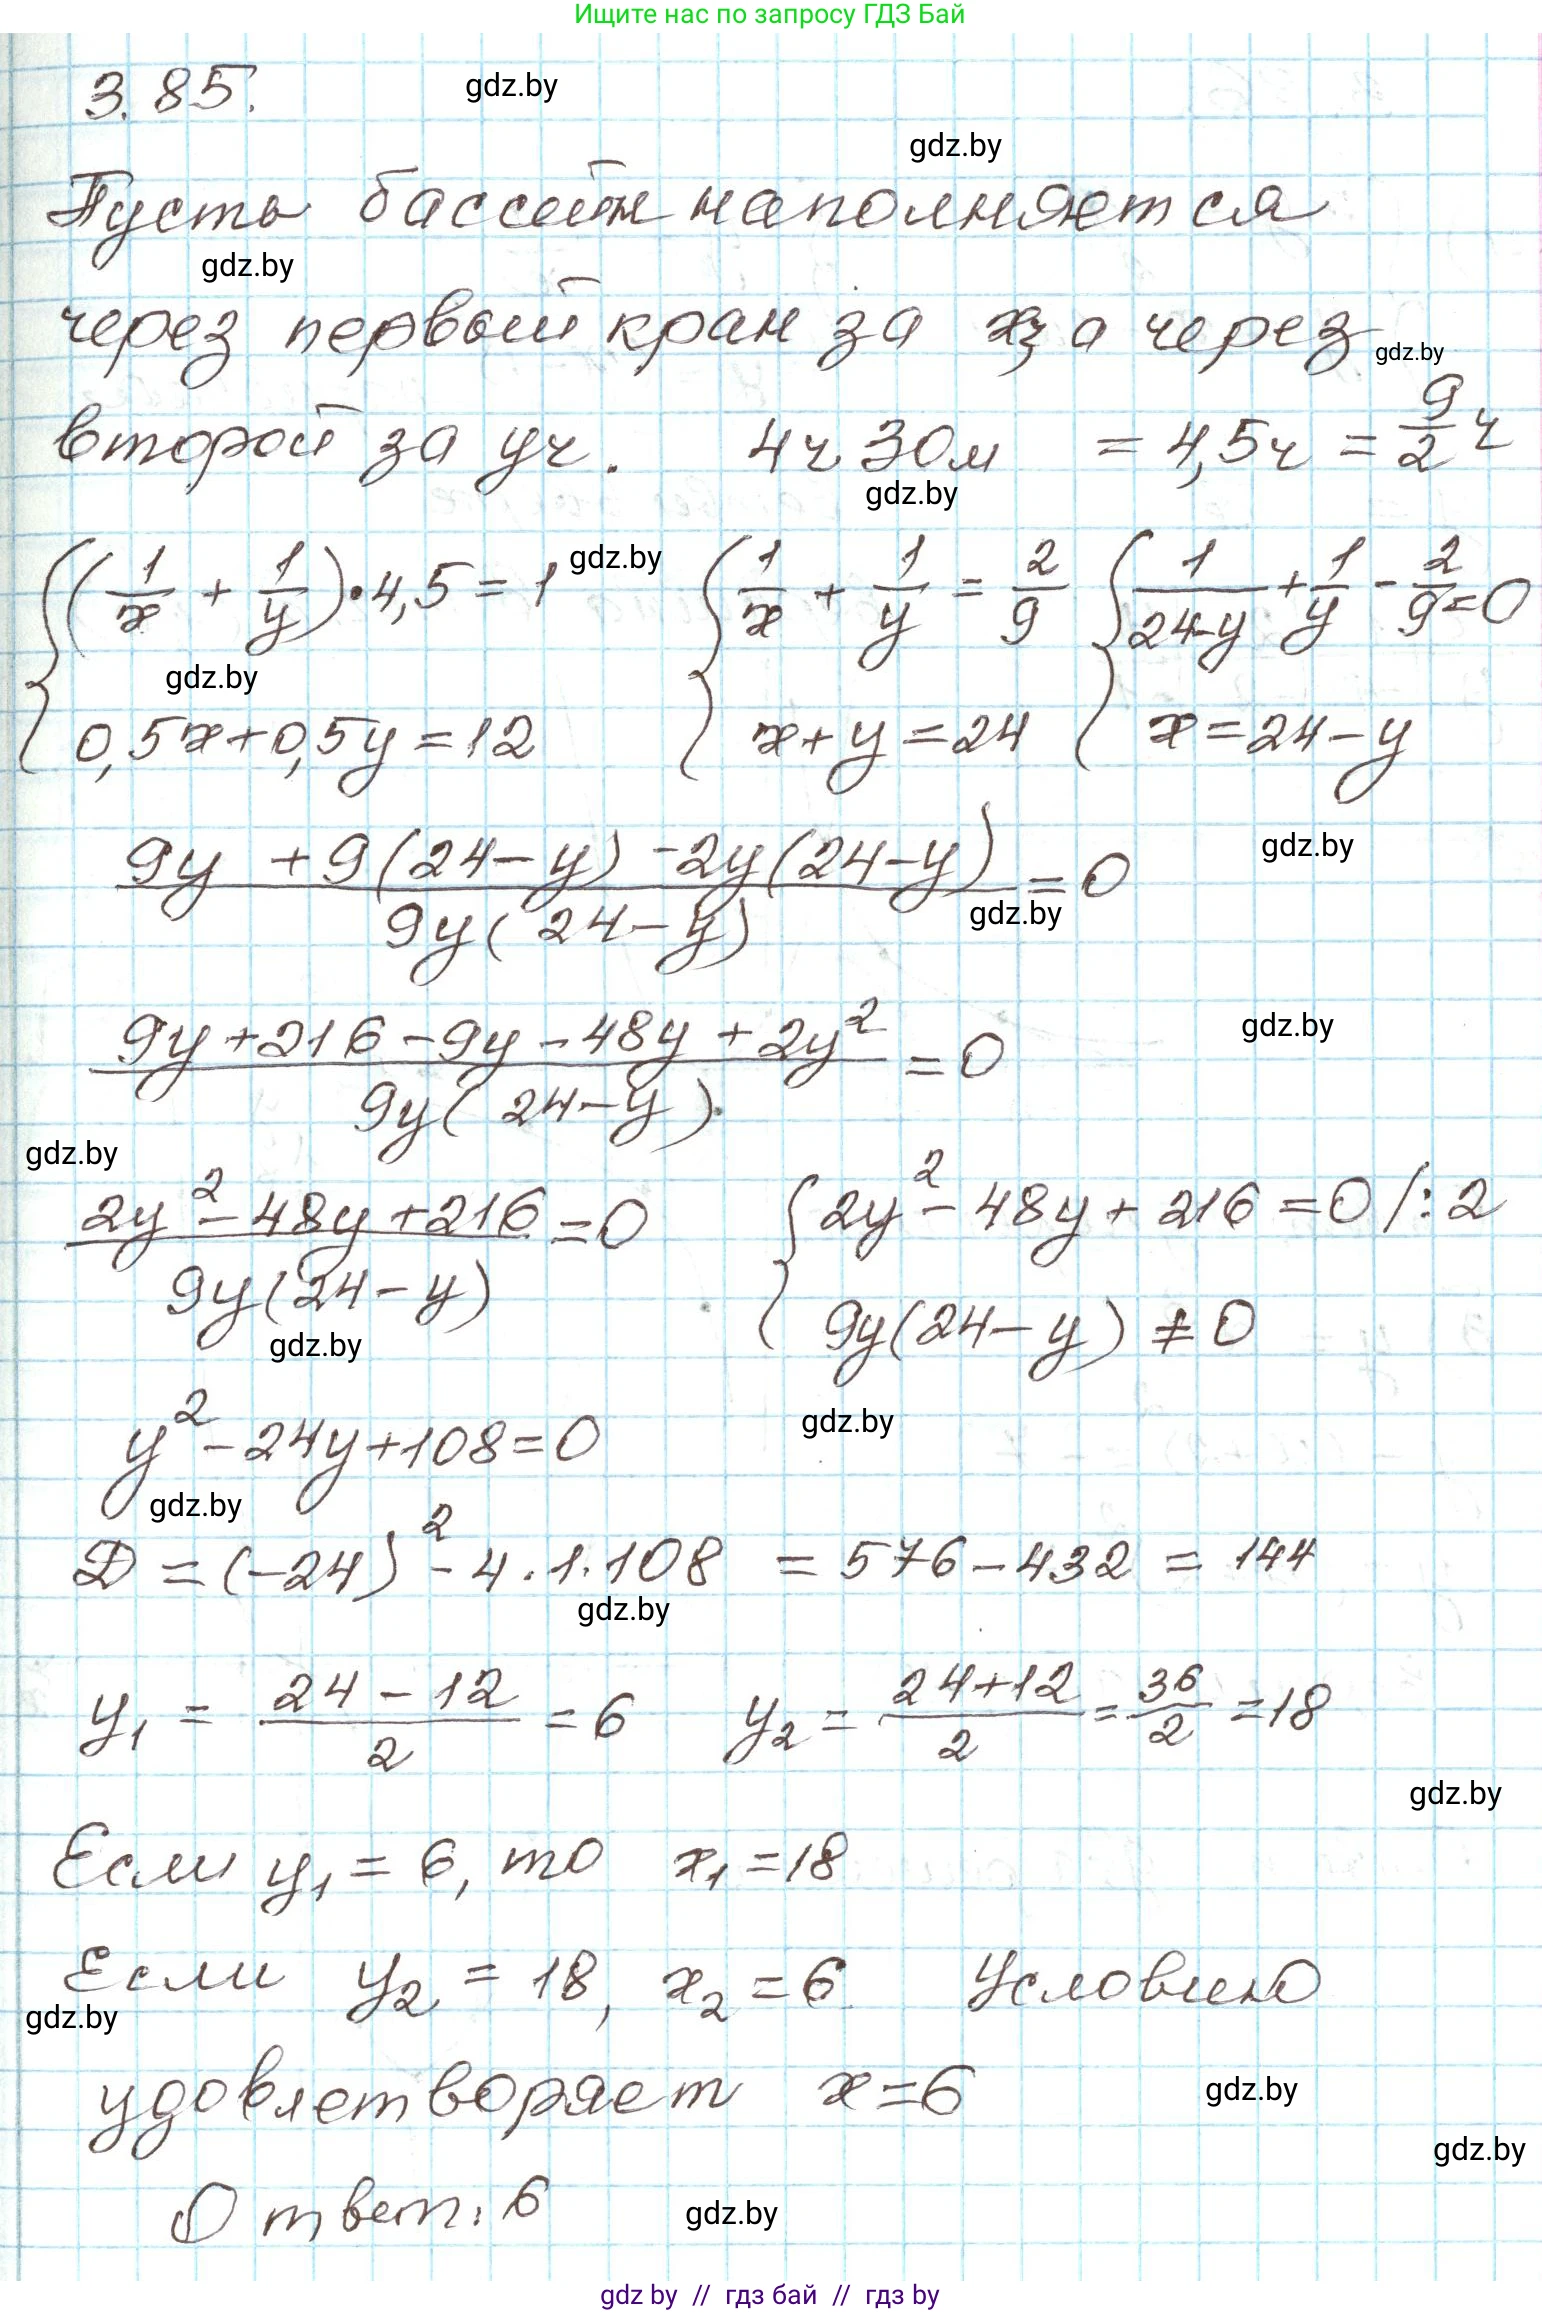 Ищите нас по запросу ГДЗ Бай
3.85.
gdz.by
gdz.by
Пусть бассейн наполняется
gdz.by
через первый кран за xч а через
gdz.by
второй за yч. 4ч 30м = 4,5ч = 9/2 ч
gdz.by
{(1/x + 1/y)·4,5 = 1 {1/x + 1/y = 2/9 {1/(24-y) + 1/y - 2/9 = 0
gdz.by
gdz.by
0,5x+0,5y=12 x+y=24 x=24-y
(9y + 9(24-y) - 2y(24-y))/(9y(24-y)) = 0
gdz.by
gdz.by
(9y+216-9y-48y+2y²)/(9y(24-y)) = 0
gdz.by
gdz.by
(2y²-48y+216)/(9y(24-y)) = 0 {2y²-48y+216=0 /:2
9y(24-y) ≠ 0
gdz.by
y²-24y+108=0
gdz.by
gdz.by
D = (-24)² - 4·1·108 = 576-432 = 144
gdz.by
y₁ = (24-12)/2 = 6 y₂ = (24+12)/2 = 36/2 = 18
gdz.by
Если y₁ = 6, то x₁ = 18
Если y₂ = 18, x₂ = 6 Условию
gdz.by
удовлетворяет x=6
gdz.by
gdz.by
Ответ: 6
gdz.by
gdz by // гдз бай // gdz by